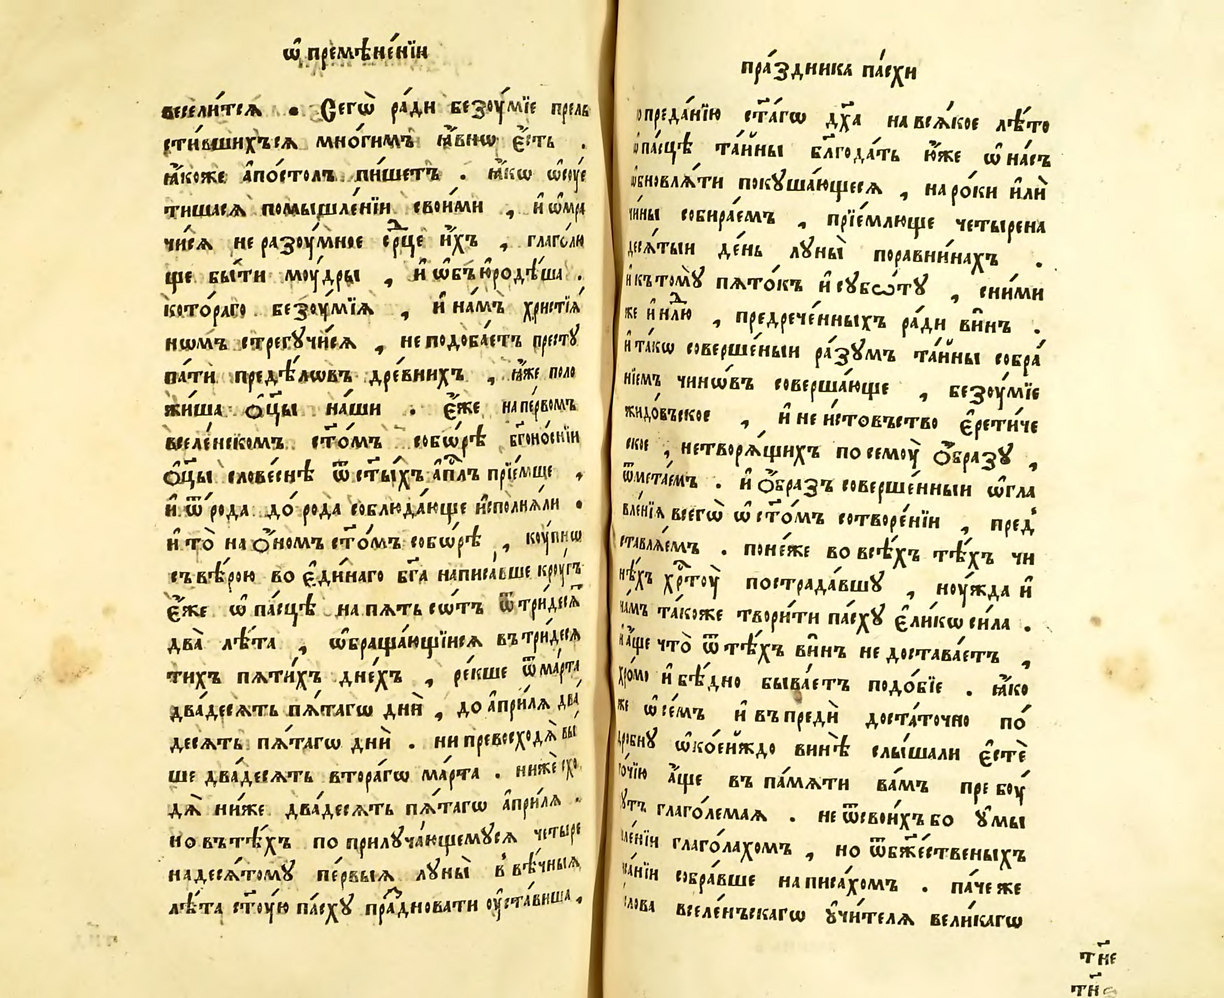 ѡ҆ премѣне́нїи
весели́тсѧ . Сегѡ̀ ра́ди безꙋ́мїе прель
сти́вшихъсѧ мно́гимъ ꙗ҆́внѡ є҆́сть .
ꙗ҆́коже а҆по́столъ пи́шетъ . ꙗ҆́кѡ ѡ҆сꙋе
ти́шасѧ помышле́нїи свои́ми , и҆ ѡ҆мра
чи́сѧ не разꙋ́мное срⷣце и҆́хъ , глаго́лю
ще бы́ти мꙋ́дры , и҆ ѡ҆бъюродѣ́ша .
кото́раго безꙋ́мїѧ , и҆ на́мъ христїѧ́
нѡмъ стрегꙋ́чисѧ , не подоба́етъ престꙋ
па́ти предѣ́лѡвъ дре́внихъ , ꙗ҆́же поло
жи́ша ѻ҆ц҃ы на́ши . є҆́же на пе́рвомъ
вселе́нскомъ ст҃о́мъ собо́рѣ бг҃оно́снїи
ѻ҆ц҃ы слове́снѣ ѿ ст҃ы́хъ а҆пⷭ҇лъ прїе́мше ,
и҆ ѿ ро́да до ро́да соблюда́юще и҆сполнѧ́ли .
и҆ то̀ на ѻ҆́номъ ст҃о́мъ собо́рѣ , кꙋ́пнѡ
съ вѣ́рою во є҆ди́наго бг҃а написа́вше крꙋ́гъ
є҆́же ѡ҆ па́сцѣ на пѧ́ть сѡ́тъ ѿ три́десѧ
два̀ лѣ́та , ѡ҆браща́ющїисѧ въ три́десѧ
ти́хъ пѧти́хъ дне́хъ , ре́кше ѿ ма́рта
два́десѧть пѧ́тагѡ днѝ , до а҆прі́лѧ два́
десѧть пѧ́тагѡ днѝ . ни превосходѧ̀ вы́
ше два́десѧть втора́гѡ ма́рта . ниже схо
дѧ̀ ни́же два́десѧть пѧ́тагѡ а҆прі́лѧ .
но въ тѣ́хъ по прилꙋча́ющемꙋсѧ четыре
надесѧ́томꙋ пе́рвыѧ лꙋны̀ в вѣ́чныѧ
лѣ́та ст҃ꙋ́ю па́схꙋ пра́дновати ᲂу҆ста́виша .
пра́здника па́схи
преда́нїю ст҃а́гѡ дх҃а на всѧ́кое лѣ́то
па́сцѣ та́йны бл҃года́ть ю҆́же ѡ҆ на́съ
ѡбновлѧ́ти покꙋша́ющесѧ , на ро́ки и҆лѝ
чи́ны собира́емъ , прїе́млюще четырена
десѧ́тыи де́нь лꙋны̀ по равни́нахъ .
и҆ къ томꙋ̀ пѧто́къ и҆ сꙋбѡ́тꙋ , с ни́ми
же и҆ нⷣлю , предрече́нныхъ ра́ди ви́нъ .
и҆ та́кѡ соверше́ныи ра́зꙋмъ та́йны собра́
нїемъ чинѡ́въ соверша́юще , безꙋ́мїе
жидо́вьское , и҆ не и́стовъство є҆рети́че
ское , не творѧ́щихъ по семꙋ̀ ѻ҆́бразꙋ ,
ѿмета́емъ . и҆ ѻ҆́бразъ соверше́нныи ѡ҆гла
вле́нїѧ всегѡ̀ ѡ҆ ст҃о́мъ сотворе́нїи , пред̾
ставлѧ́емъ . поне́же во всѣ́хъ тѣ́хъ чи
нѣ́хъ хрⷭ҇тꙋ̀ пострада́вшꙋ , нꙋ́жда и҆
на́мъ та́коже твори́ти па́схꙋ є҆ли́кѡ си́ла .
и҆ а҆́ще что̀ ѿ тѣ́хъ ви́нъ не достава́етъ ,
хро́мо и҆ бѣ́дно быва́етъ подо́бїе . ꙗ҆́ко
же ѡ҆ се́мъ и҆ въ предѝ доста́точно по́
дробнꙋ ѡ҆ ко́еи́ждо винѣ̀ слы́шали є҆стѐ
то́чїю а҆́ще въ па́мѧти ва́мъ пребꙋ́
дꙋтъ глаго́лемаѧ . не ѿ свои́хъ бо ᲂу҆мы
шле́нїи глаго́лахомъ , но ѿ бж҃е́ственыхъ
писа́нїи собра́вше написа́хомъ . па́че же
сло́ва вселе́ньскагѡ ᲂу҆чи́телѧ вели́кагѡ
тн҃е